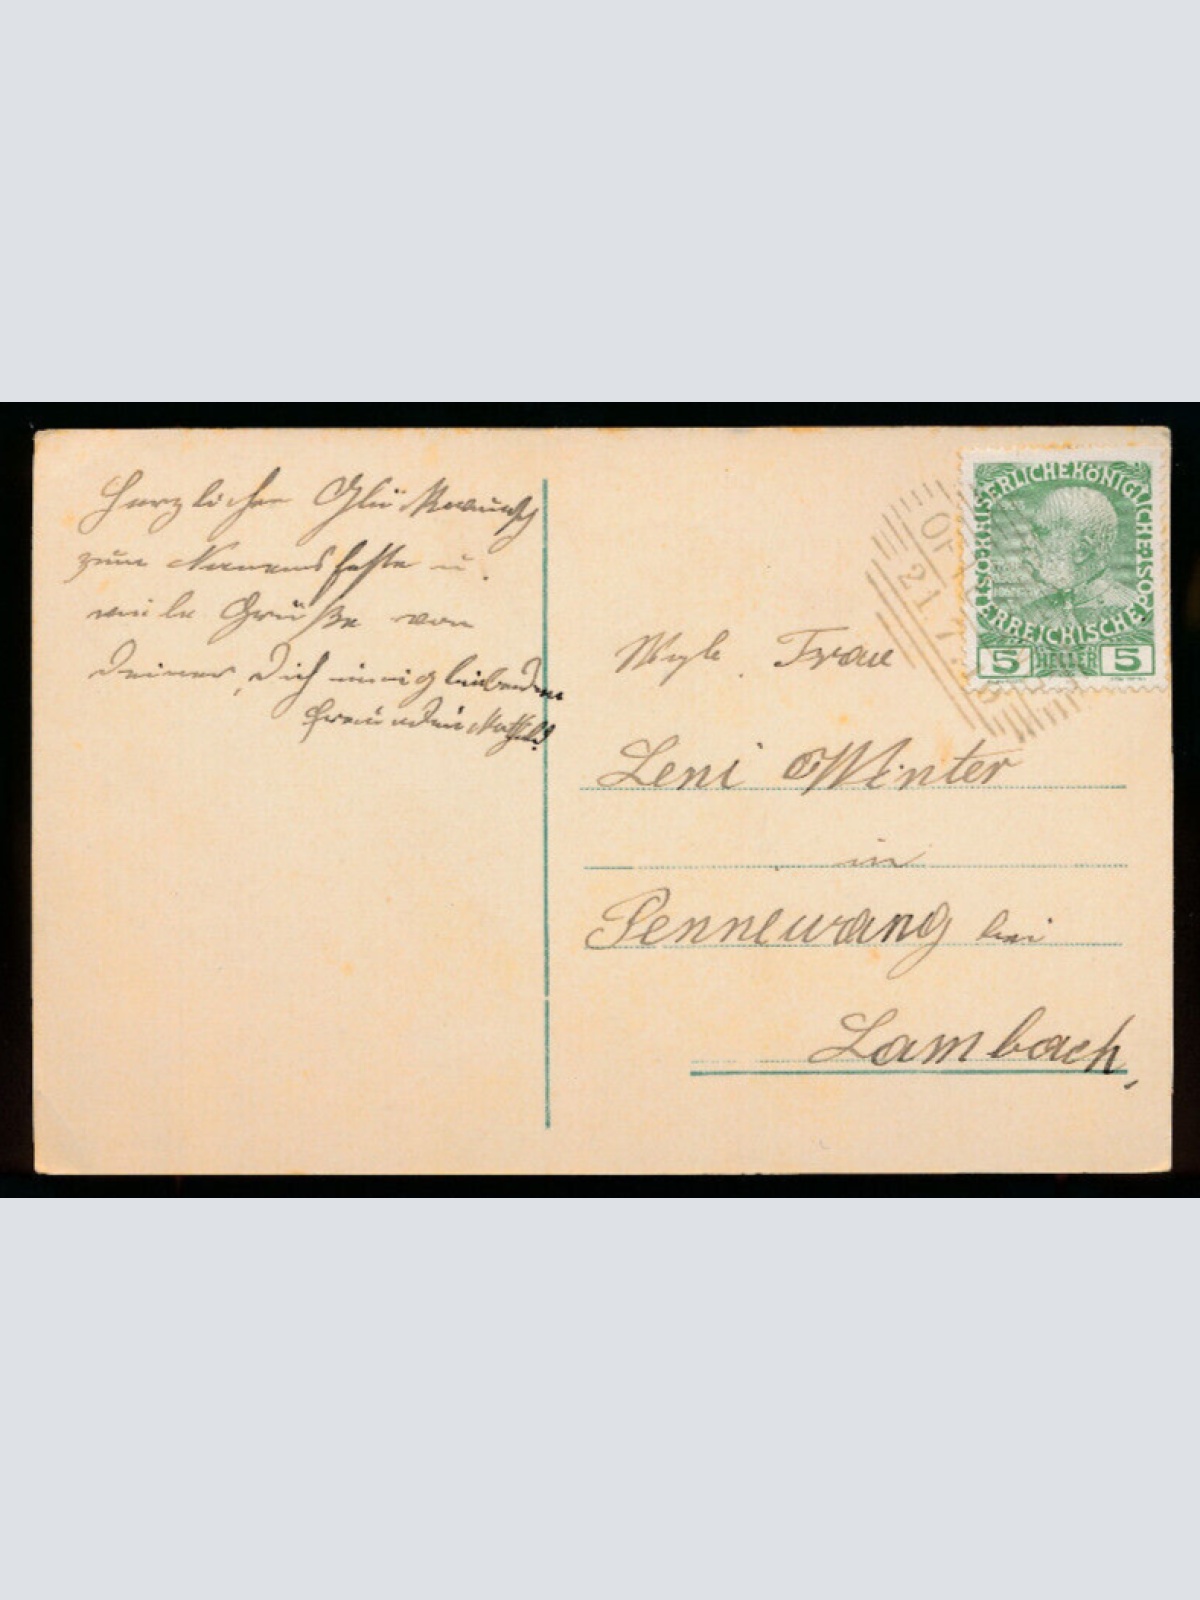 Herzlichen Glückwunsch
zum Namensfeste u.
viele Grüße von
Deiner, Dich innig liebenden
Freundin Mathild.
KAISERLICHE KÖNIGLICHE
ÖSTERREICHISCHE
5 HELLER 5
21.
Frau
Leni Winter
in
Pennewang bei
Lambach,